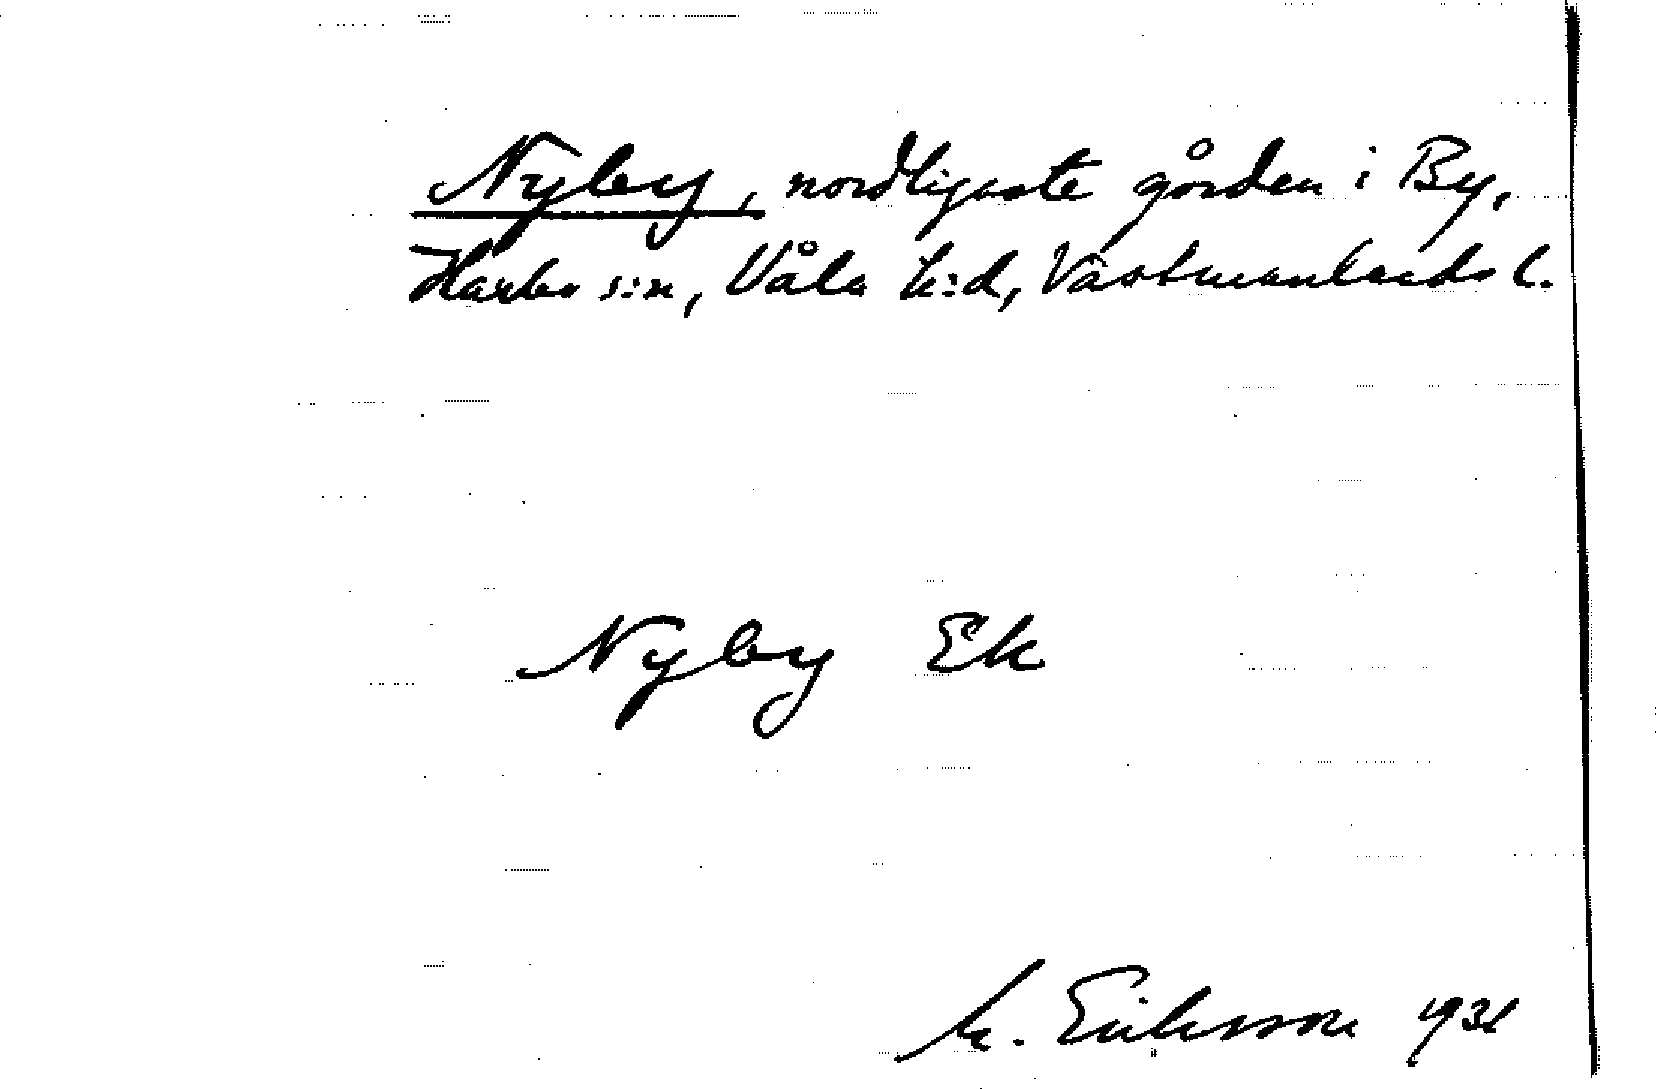 Nyby, nordligaste gården i By,
Harbo s:n, Våla h:d, Västmanlands l.
Nyby Ek
M. Eriksson 1931